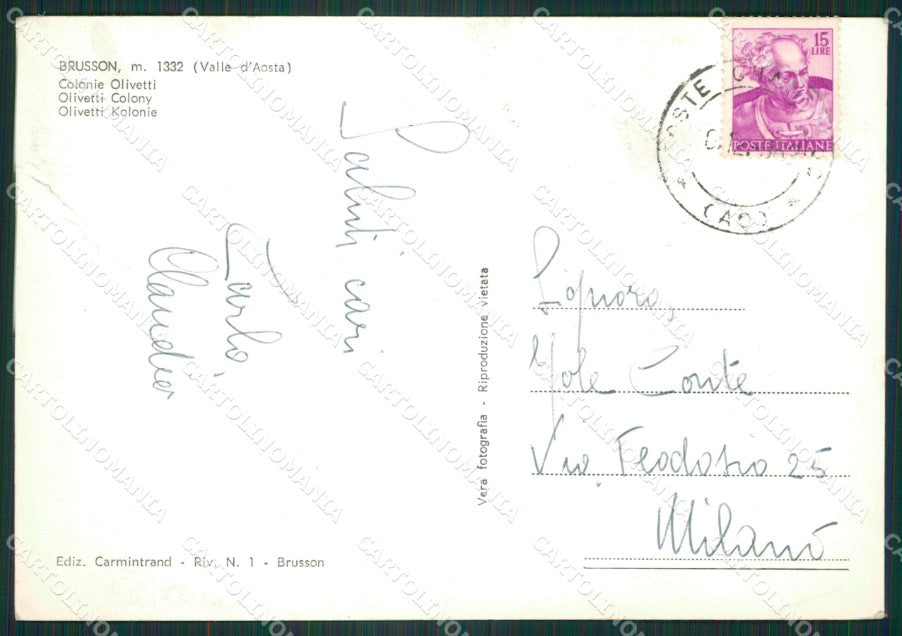 BRUSSON, m. 1332 (Valle d'Aosta)
Colonie Olivetti
Olivetti Colony
Olivetti Kolonie
Saluti cari
Carlo,
Claudia
Vera fotografia - Riproduzione vietata
Ediz. Carmintrand - Riv. N. 1 - Brusson
15
LIRE
POSTE ITALIANE
POSTE
(AO)
Signora,
Yole Conte
Via Feodosio 25
Milano
CARTOLINOMANIA